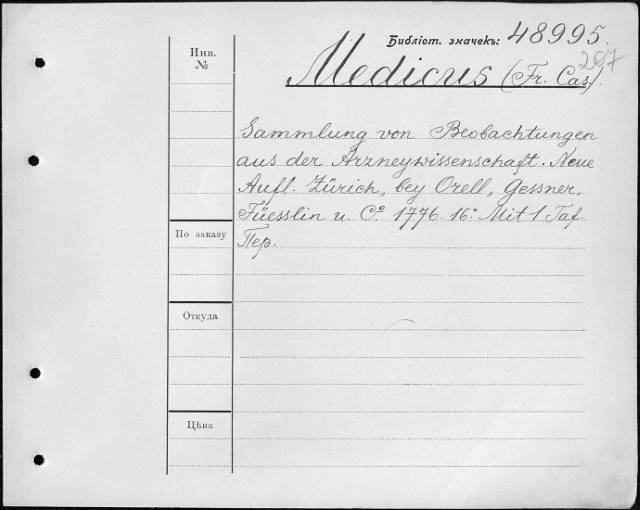 Библіот. значекъ: 48995.
297
Инв.
№
Medicus (Fr. Cas.)
Sammlung von Beobachtungen
aus der Arzneywissenschaft. Neue
Aufl. Zürich, bey Orell, Gessner,
Füesslin u. Cº 1776. 16º Mit 1 Taf.
Пер.
По заказу
Откуда
Цѣна